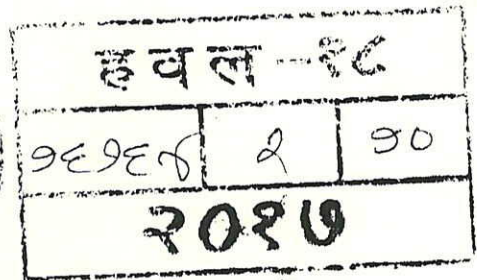 हवल - १८
१६१६४ २ १०
२०१७